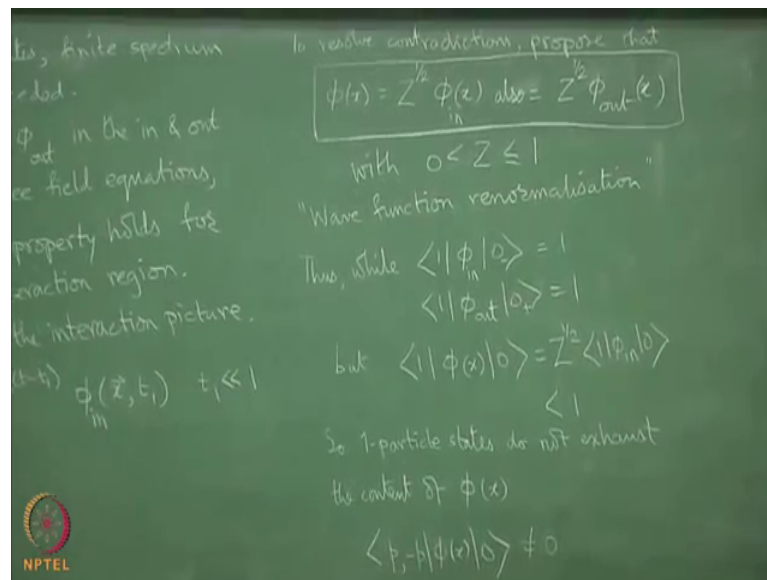 finite spectrum
in the in & out
out
field equations,
property holds for
region.
the interaction picture.
ϕ_in(x⃗, t₁) t₁ << 1
To resolve contradictions, propose that
ϕ(x) = Z^{1/2} ϕ_in(x) also = Z^{1/2} ϕ_out(x)
with 0 < Z ≤ 1
"Wave function renormalisation"
Thus, while <1|ϕ_in|0_-> = 1
<1|ϕ_out|0_+> = 1
but <1|ϕ(x)|0> = Z^{1/2} <1|ϕ_in|0>
< 1
So 1-particle states do not exhaust
the content of ϕ(x)
<p,-p|ϕ(x)|0> ≠ 0
NPTEL